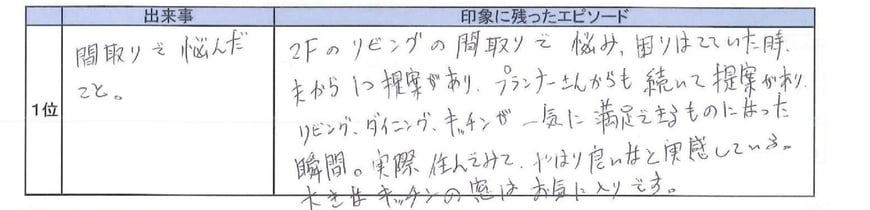 出来事 印象に残ったエピソード
1位
間取りで悩んだ
こと。
2Fのリビングの間取りで悩み、困りはてていた時、
夫から1つ提案があり、プランナーさんからも続いて提案があり、
リビング、ダイニング、キッチンが一気に満足できるものになった
瞬間。実際住んでみて、やはり良いなと実感している。
大きなキッチンの窓はお気に入りです。